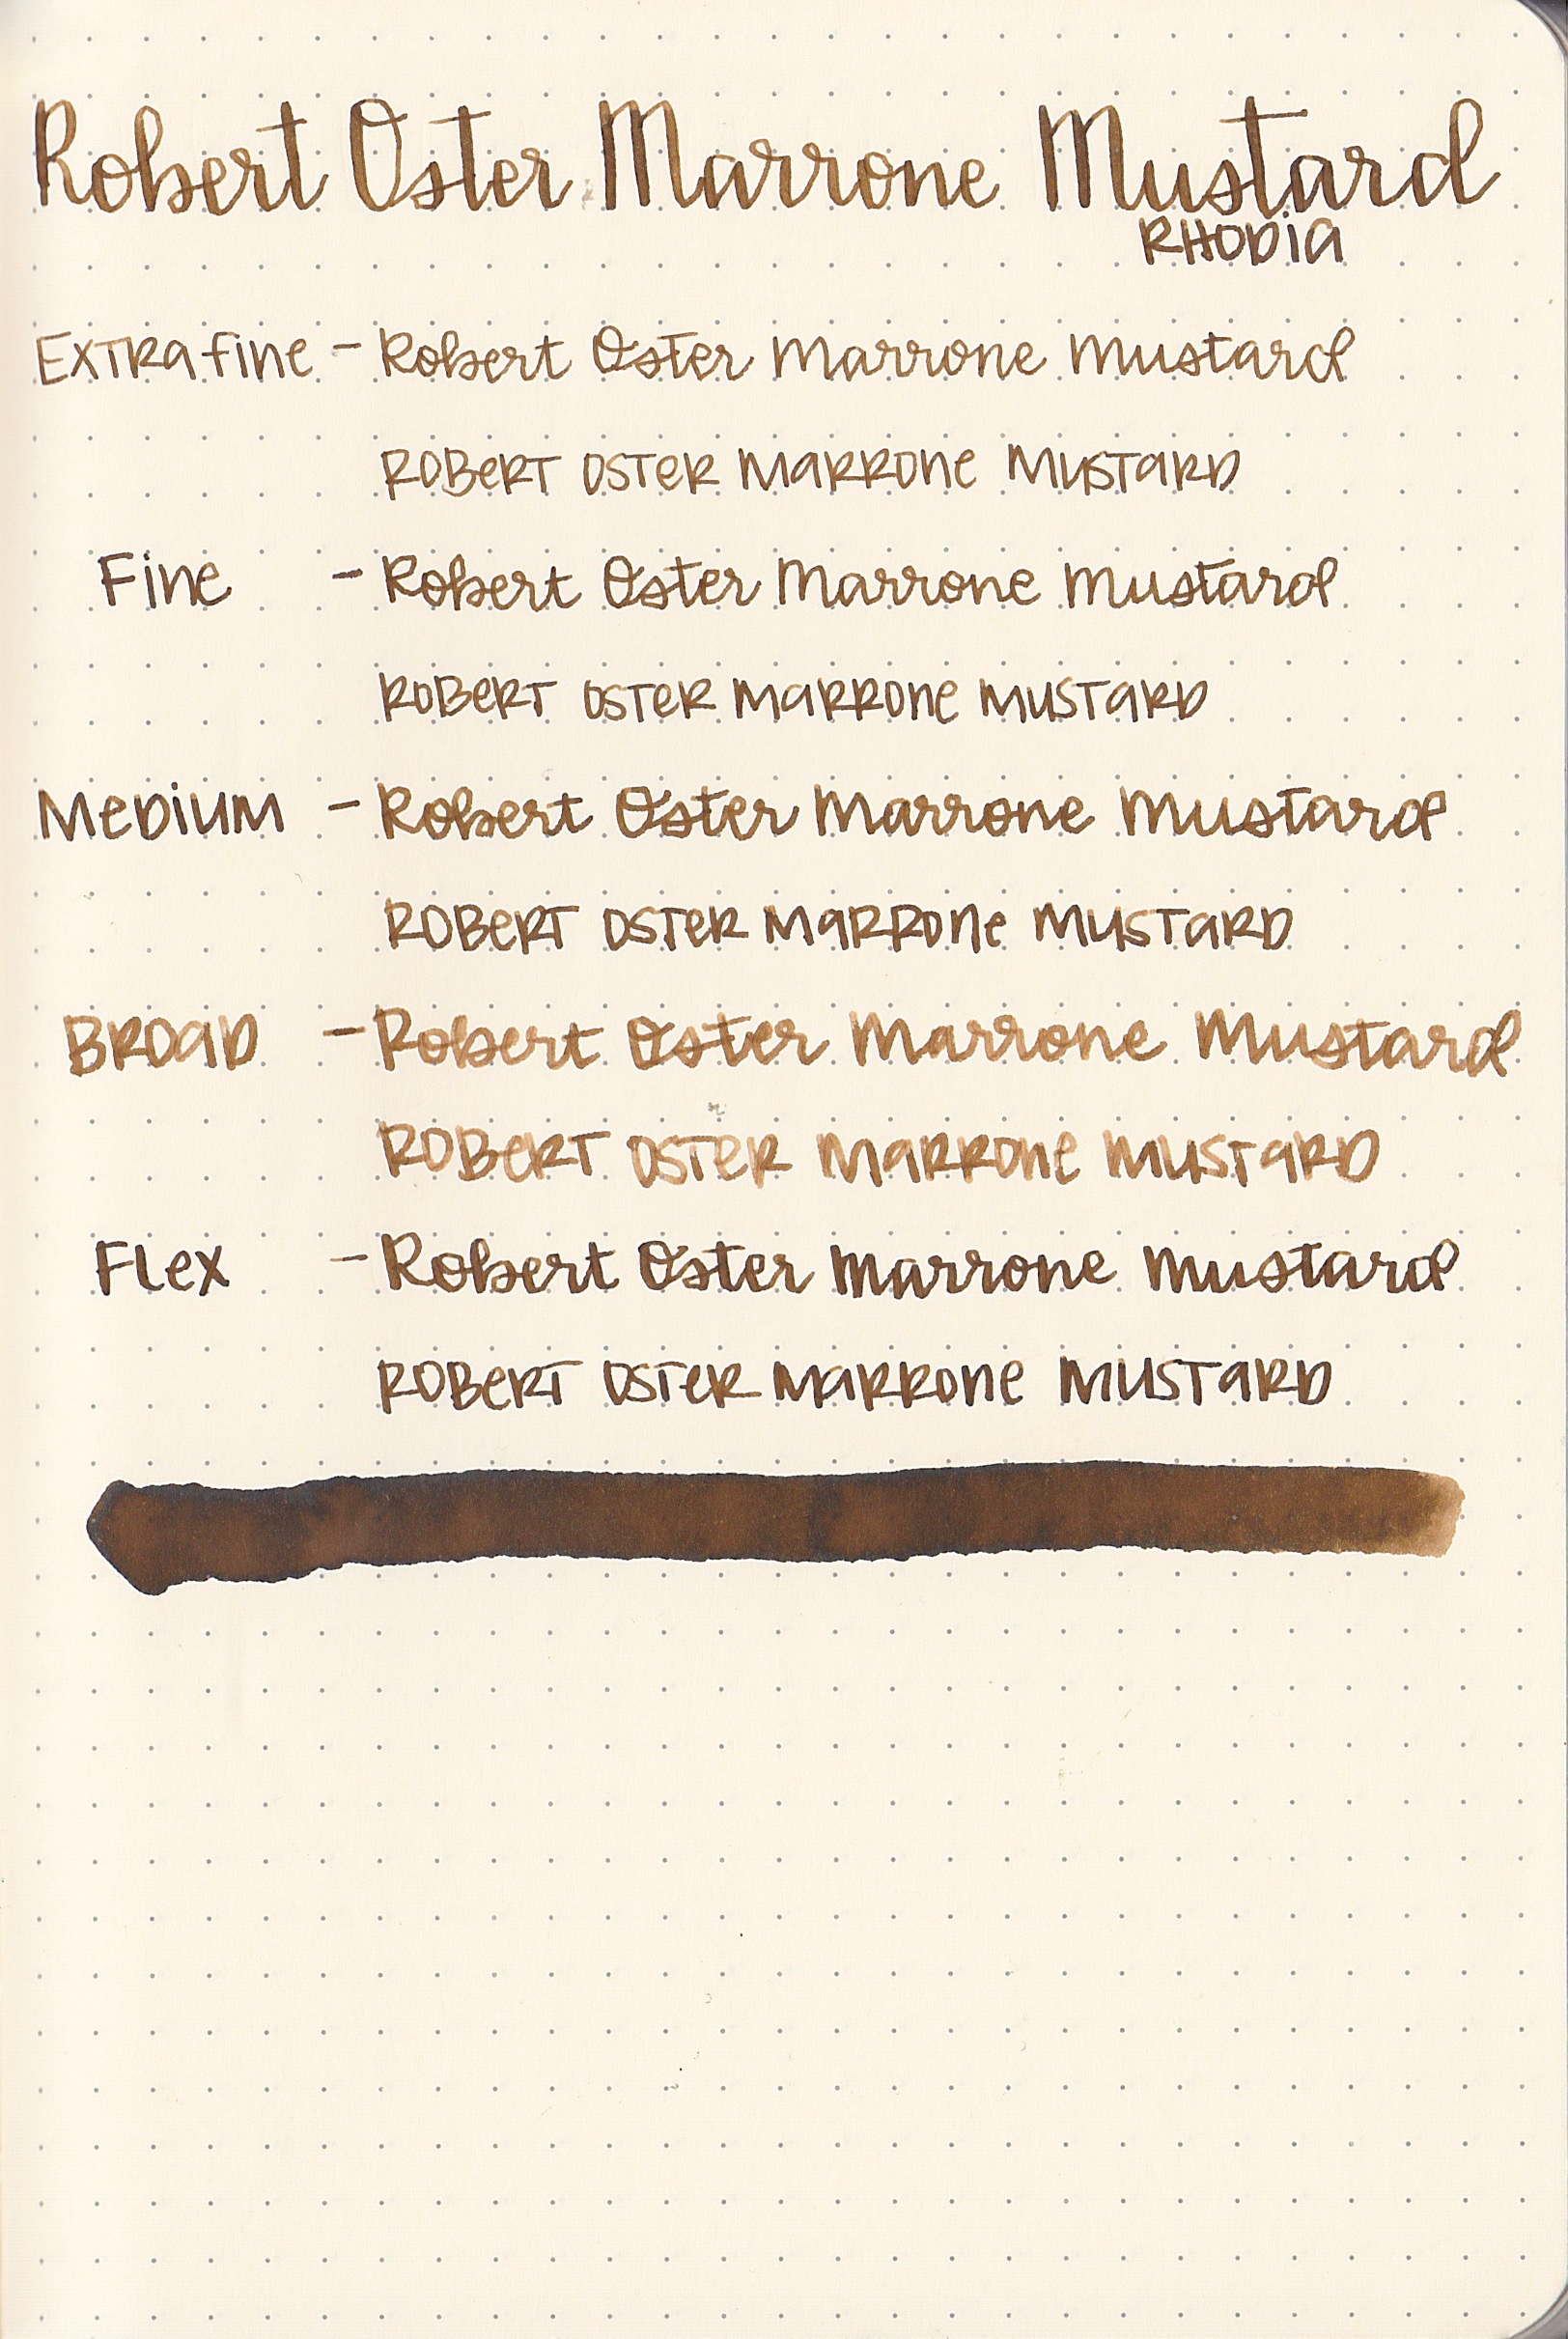 Robert Oster Marrone Mustard
RHODIA
Extra fine - Robert Oster Marrone Mustard
ROBERT OSTER MARRONE MUSTARD
Fine - Robert Oster Marrone Mustard
ROBERT OSTER MARRONE MUSTARD
Medium - Robert Oster Marrone Mustard
ROBERT OSTER MARRONE MUSTARD
Broad - Robert Oster Marrone Mustard
ROBERT OSTER MARRONE MUSTARD
Flex - Robert Oster Marrone Mustard
ROBERT OSTER MARRONE MUSTARD